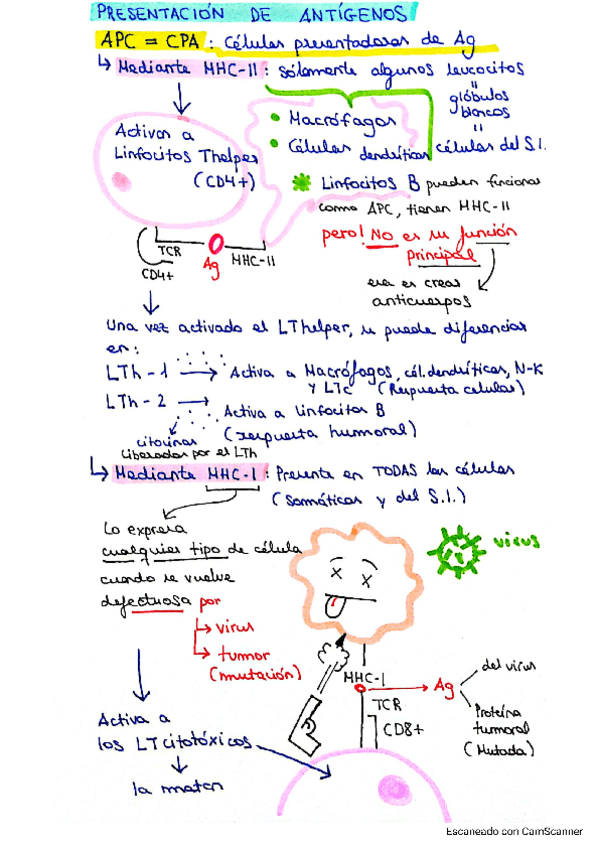 PRESENTACIÓN DE ANTÍGENOS
APC = CPA : Células presentadoras de Ag
↳ Mediante MHC-II : sólamente algunos leucocitos
=
glóbulos
blancos
=
células del S.I.
• Macrófagos
• Células dendríticas
Linfocitos B pueden funcionar
como APC, tienen MHC-II
pero! NO es su función
principal
era es crear
anticuerpos
Activan a
Linfocitos Thelper
(CD4+)
TCR
CD4+
Ag
MHC-II
Una vez activado el LThelper, se puede diferenciar
en:
LTh-1 → Activa a Macrófagos, cél. dendríticas, N-K
y LTc (Respuesta celular)
LTh-2 → Activa a linfocitos B
(respuesta humoral)
citocinas
liberadas por el LTh
↳ Mediante MHC-I : Presente en TODAS las células
(Somáticas y del S.I.)
Lo expresa
cualquier tipo de célula
cuando se vuelve
defectuosa por
↳ virus
↳ tumor
(mutación)
virus
x x
MHC-I
→ Ag
del virus
Proteína
tumoral
(Mutada)
TCR
CD8+
Activa a
los LTcitotóxicos
la matan
Escaneado con CamScanner